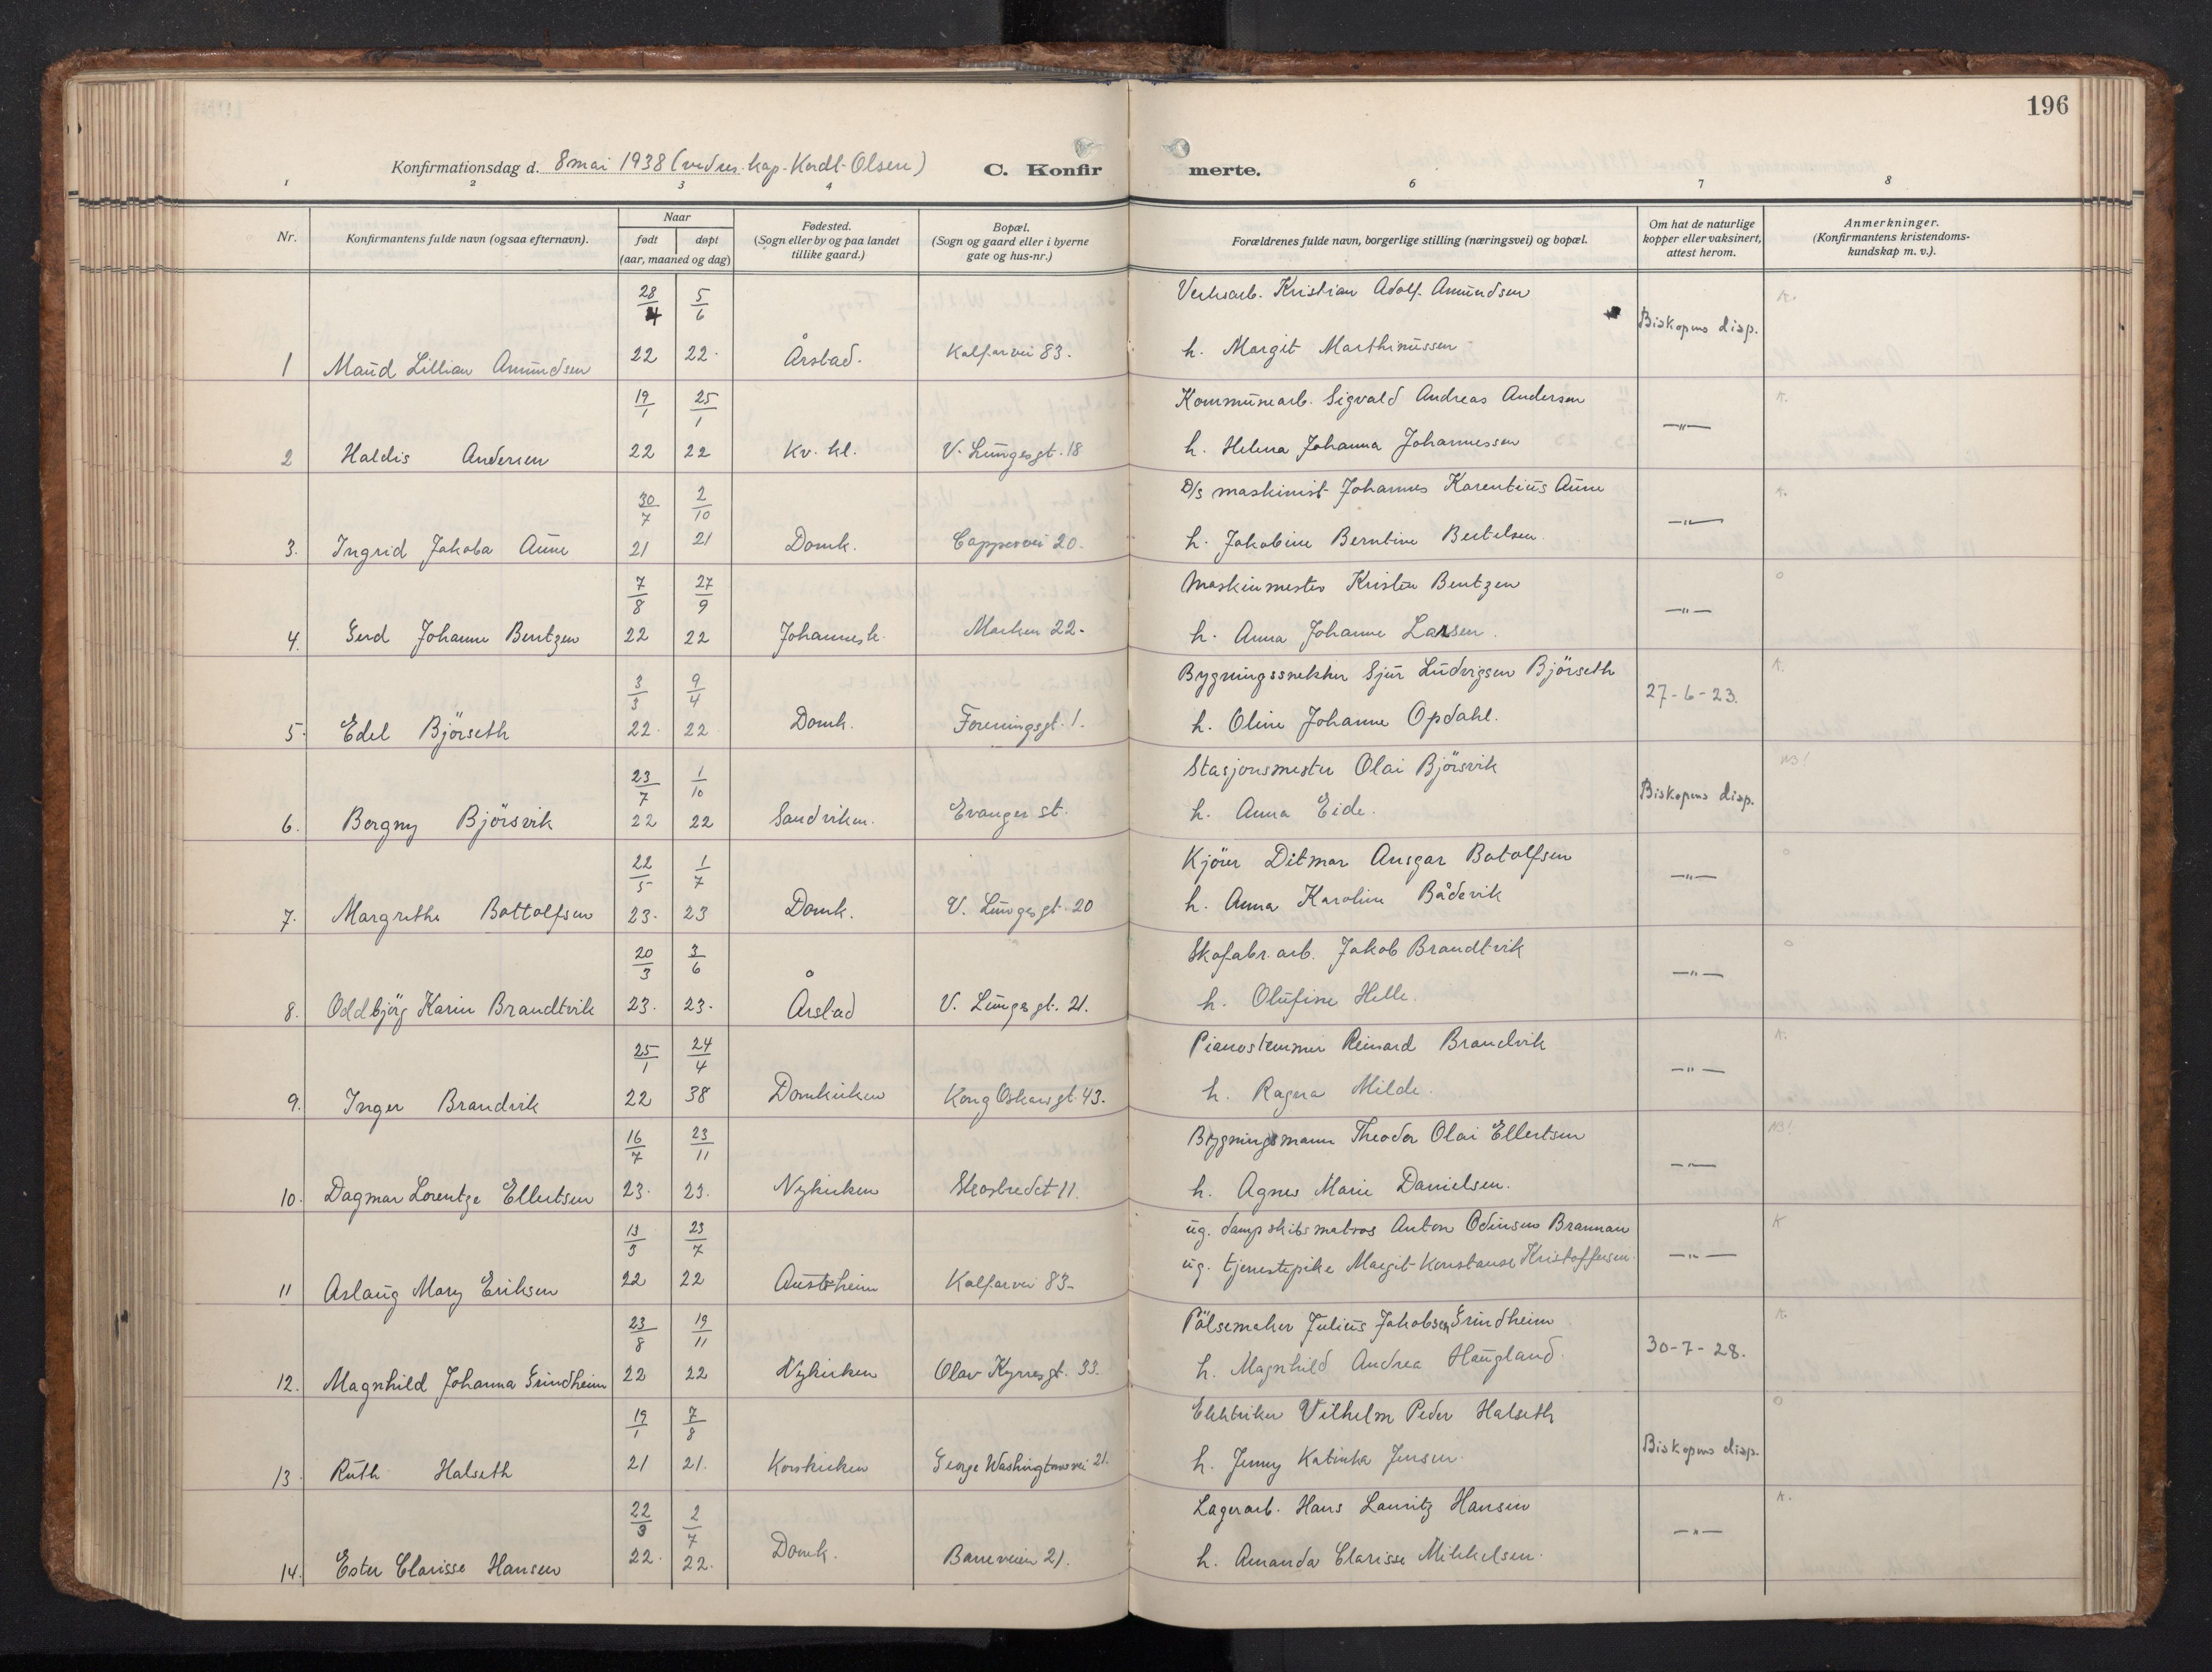 196
Konfirmationsdag d. 8 mai 1938 (ved res. kap. Kordt-Olsen)
C. Konfirmerte.
1 2 3 4 6 7 8
Nr.
Konfirmantens fulde navn (ogsaa efternavn).
Naar
født døpt
(aar, maaned og dag)
Fødested.
(Sogn eller by og paa landet
tillike gaard.)
Bopæl.
(Sogn og gaard eller i byerne
gate og hus-nr.)
Forældrenes fulde navn, borgerlige stilling (næringsvei) og bopæl.
Om hat de naturlige
kopper eller vaksinert,
attest herom.
Anmerkninger.
(Konfirmantens kristendoms-
kundskap m. v.).
28/4 5/6 Verksarb. Kristian Adolf Amundsen K.
1 Maud Lillian Amundsen 22 22. Årstad. Kalfarvei 83. h. Margit Marthinussen Biskopens disp.
19/1 25/1 Kommunearb. Sigvald Andreas Andersen K.
2 Haldis Andersen 22 22 Kv. kl. V. Lungesgt. 18 h. Helena Johanna Johannessen —"—
30/7 2/10 D/s maskinist Johannes Karentius Aune K.
3. Ingrid Jakoba Aune 21 21 Domk. Cappesvei 20. h. Jakobine Berntine Bertelsen. —"—
7/8 27/9 Maskinmester Kristen Bentzen o
4. Gerd Johanne Bentzen 22 22 Johannesk. Marken 22. h. Anna Johanne Larsen. —"—
3/3 9/4 Bygningssnekker Sjur Ludvigsen Björseth K.
5. Edel Björseth 22. 22 Domk. Foreningsgt. 1. h. Oline Johanne Opdahl. 27-6-23.
23/7 1/10 Stasjonsmester Olai Björsvik NB!
6. Borgny Björsvik 22 22 Sandviken. Evanger st. h. Anna Eide. Biskopens disp.
22/5 1/7 Kjörer Ditmar Ansgar Botolfsen o
7. Margrethe Bottolfsen 23. 23 Domk. V. Lungesgt. 20 h. Anna Karoline Bådsvik —"—
20/3 3/6 Skofabr. arb. Jakob Brandtvik o
8. Oddbjörg Karin Brandtvik 23. 23. Årstad V. Lungesgt. 21. h. Olufine Helle. —"—
25/1 24/4 Pianostemmer Reinard Brandvik K.
9. Inger Brandvik 22 38 Domkirken Kong Oskarsgt. 43. h. Ragna Milde. —"—
16/7 23/11 Bygningsmann Theodor Olai Ellertsen NB!
10. Dagmar Lorentze Ellertsen 23. 23. Nykirken Skostredet 11. h. Agnes Marie Danielsen. —"—
13/3 23/7 ug. dampskibsmatros Anton Odinsen Brannan K
11 Aslaug Mary Eriksen 22 22 Austrheim Kalfarvei 83. ug. tjenestepike Margit Konstanse Kristoffersen. —"—
23/8 19/11 Pölsemaker Julius Jakobsen Grindheim K.
12. Magnhild Johanna Grindheim 22 22 Nykirken Olav Kyrresgt. 33. h. Magnhild Andrea Haugland. 30-7-28.
19/1 7/8 Elektriker Vilhelm Peder Halseth o
13. Ruth Halseth 21 21. Korskirken George Washingtonsvei 21. h. Jenny Katinka Jensen. Biskopens disp.
22/3 2/7 Lagerarb. Hans Lauritz Hansen K.
14. Ester Clarisse Hansen 22. 22. Domk. Baneveien 21. h. Amanda Clarisse Mikkelsen. —"—